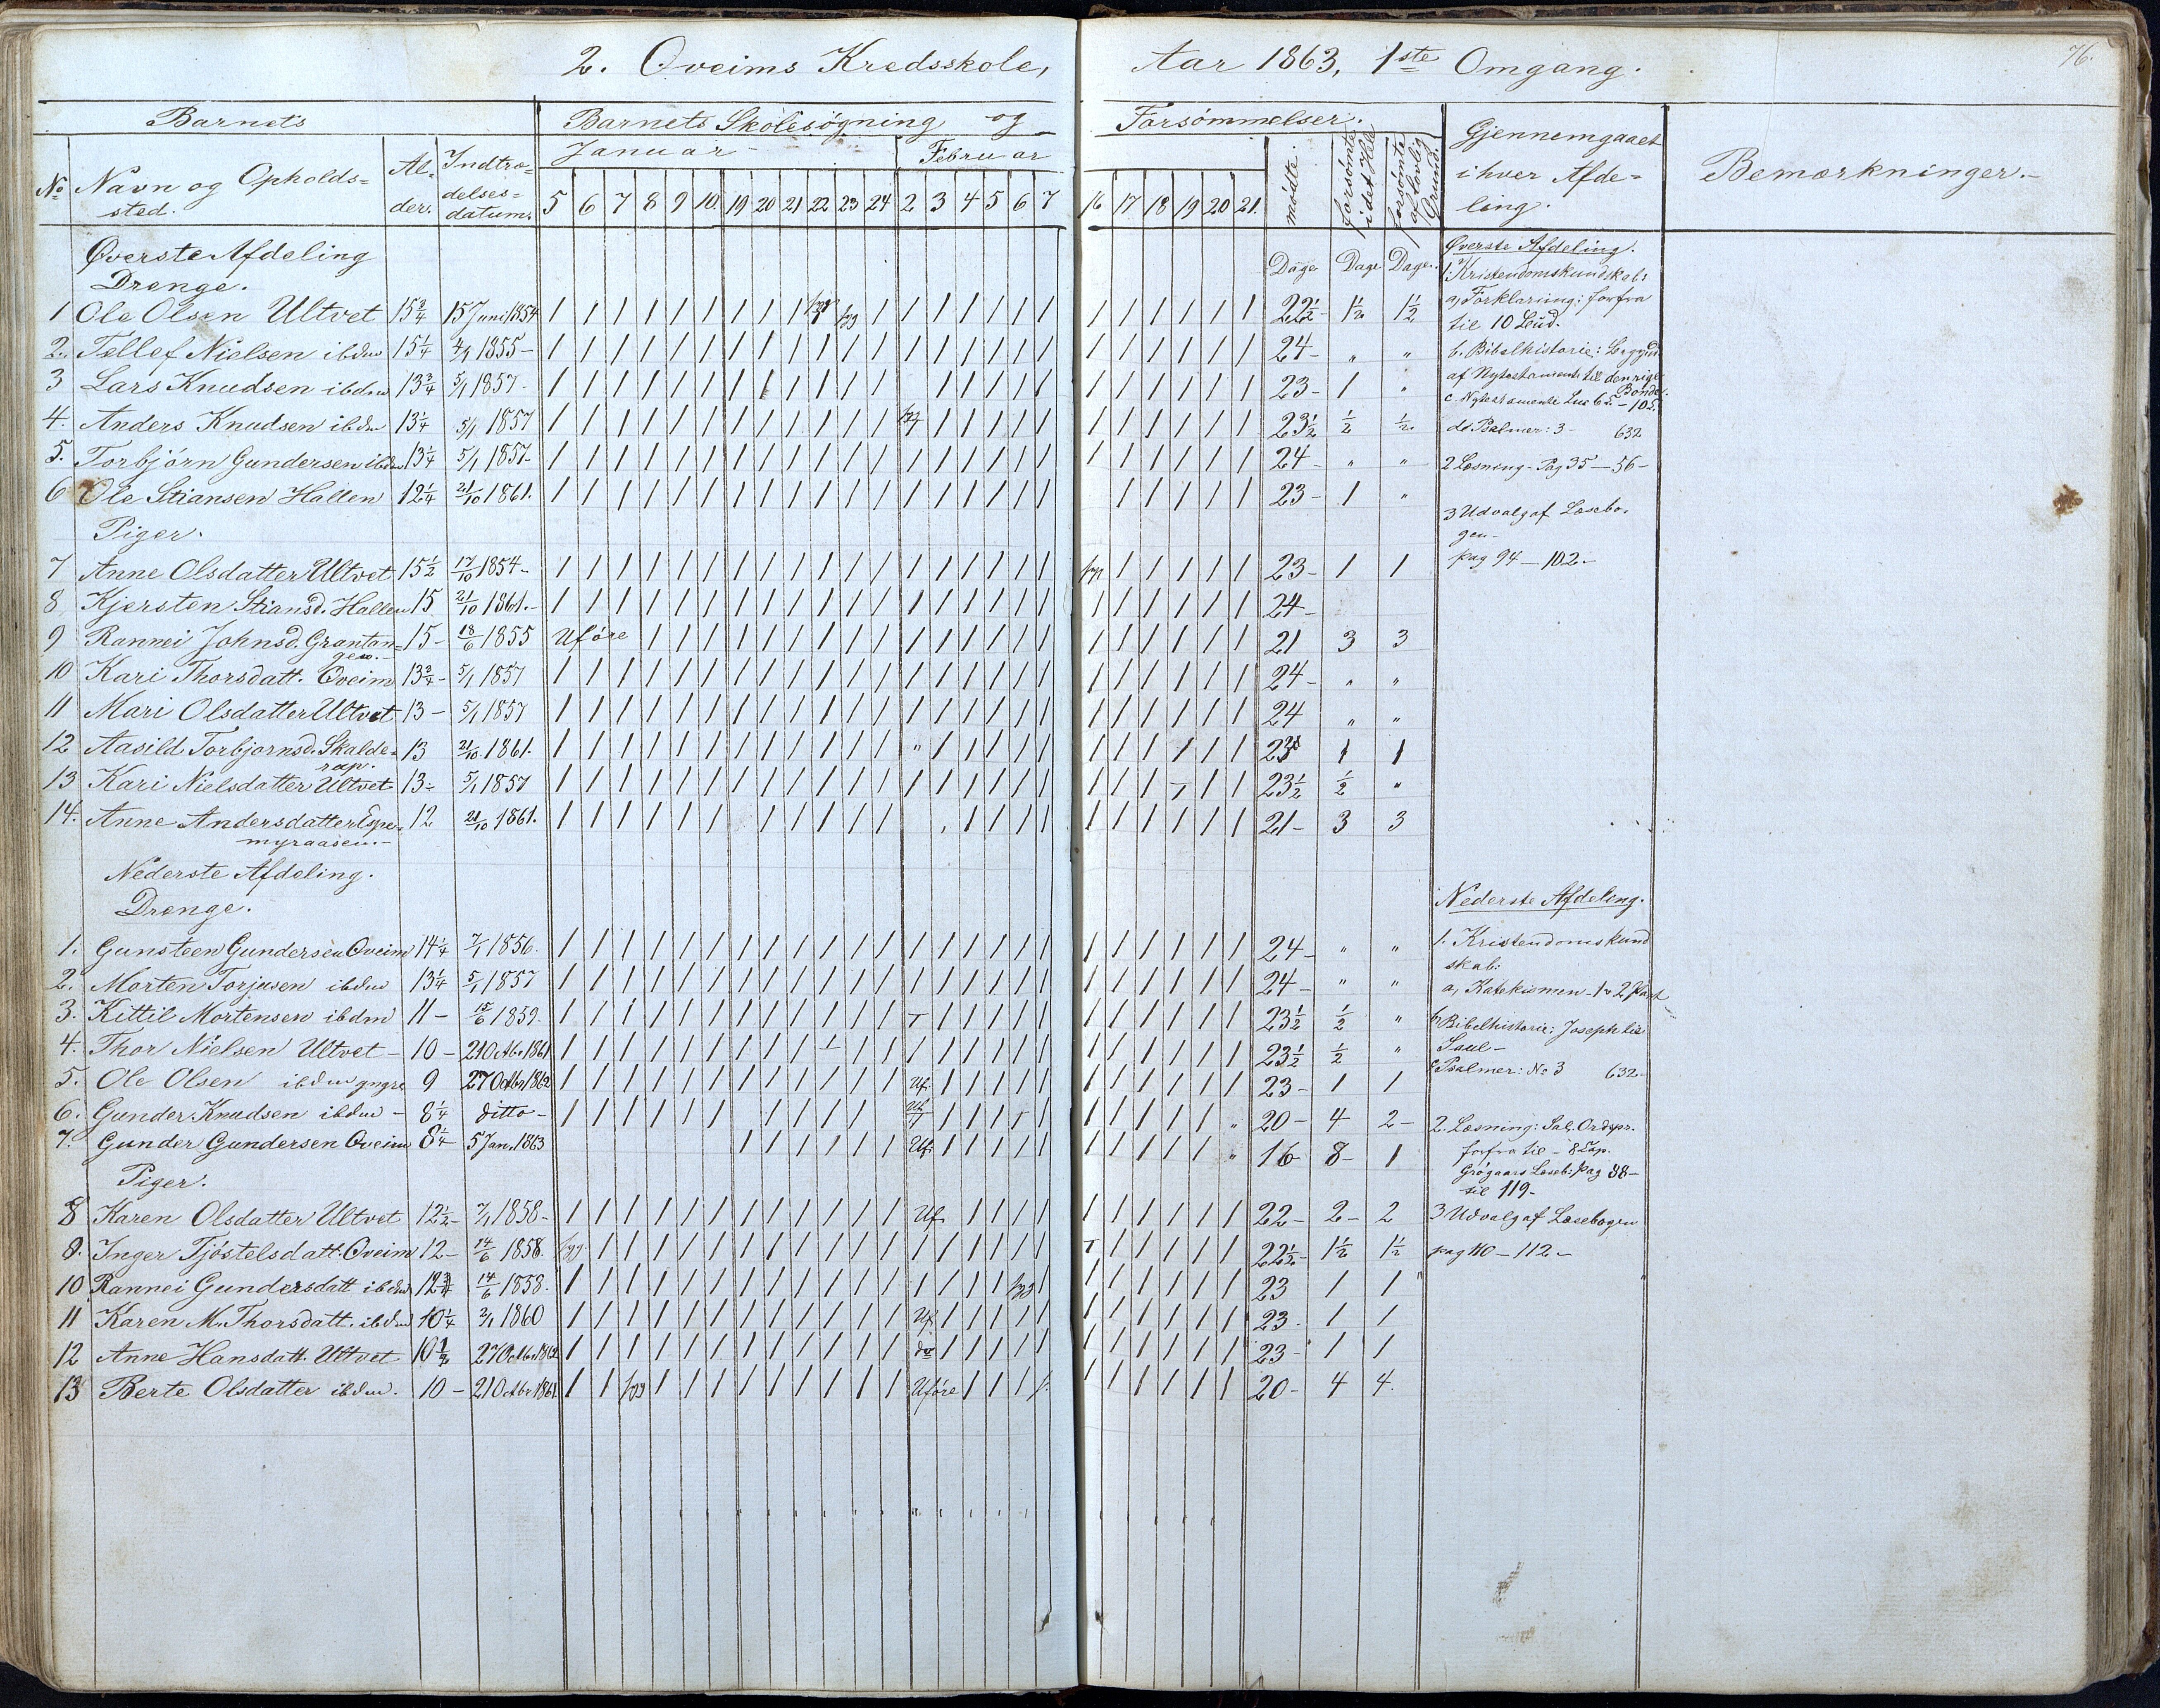 2. Oveims Kredsskole, Aar 1863, 1ste Omgang.
76.
Barnets | Barnets Skolesøgning og Forsømmelser.
No | Navn og Opholdssted. | Alder. | Indtrædelsesdatum. | Januar 5 6 7 8 9 10 19 20 21 22 23 24 | Februar 2 3 4 5 6 7 16 17 18 19 20 21. | mødte. | forsømte i det Hele | forsømte af lovlig Grund. | Gjennemgaaet i hver Afdeling. | Bemærkninger.
Øverste Afdeling
Drenge. | Dage | Dage | Dage.
1 Ole Olsen Ultvet 15 3/4 15 Juni 1854 | 22 1/2 | 1 1/2 | 1 1/2
2. Tellef Nielsen ibdm 15 1/4 1855 | 24 | " | "
3 Lars Knudsen ibdm 13 3/4 5/1 1857 | 23 | 1 | "
4. Anders Knudsen ibdm 13 1/4 5/1 1857 | 23 1/2 | 1/2 | 1/2
5. Torbjørn Gundersen ibdm 13 1/4 5/1 1857 | 24 | " | "
6 Ole Stiansen Hallen 12 1/4 21/10 1861. | 23 | 1 | "
Piger.
7 Anne Olsdatter Ultvet 15 1/2 17/10 1854 | 23 | 1 | 1
8 Kjersten Stiansd. Hallen 15 21/10 1861. | 24
9 Rannei Johnsd. Grantangen. 15 18/6 1855 Uføre | 21 | 3 | 3
10 Kari Thorsdatt. Oveim 13 3/4 5/1 1857 | 24 | " | "
11 Mari Olsdatter Ultvet 13 5/1 1857 | 24 | " | "
12 Aasild Torbjørnsd. Skalderap. 13 21/10 1861. " | 23 | 1 | 1
13 Kari Nielsdatter Ultvet 13 5/1 1857 | 23 1/2 | 1/2 | "
14. Anne Andersdatter Espemyraasen. 12 21/10 1861. | 21 | 3 | 3
Nederste Afdeling.
Drenge.
1. Gunsteen Gundersen Oveim 14 1/4 7/1 1856. | 24 | " | "
2. Morten Torjusen ibdm 13 1/4 5/1 1857 | 24 | " | "
3. Kittil Mortensen ibdm 11 15/6 1859. | 23 1/2 | 1/2 | "
4. Thor Nielsen Ultvet 10 21 Octbr 1861 | 23 1/2 | 1/2 | "
5. Ole Olsen ibdm yngre 9 27 Octbr 1862 Uf. | 23 | 1 | 1
6. Gunder Knudsen ibdm 8 1/4 ditto Uf | 20 | 4 | 2
7. Gunder Gundersen Oveim 8 1/4 5 Jan. 1863 Uf. | 16 | 8 | 1
Piger.
8 Karen Olsdatter Ultvet 12 1/2 7/1 1858 Uf. | 22 | 2 | 2
9. Inger Tjøstelsdatt. Oveim 12 14/6 1858. syg | 22 1/2 | 1 1/2 | 1 1/2
10 Rannei Gundersdatt ibdm 14/6 1858. syg | 23 | 1 | 1
11 Karen M. Thorsdatt. ibdm 10 1/4 1860 Uf | 23 | 1 | 1
12 Anne Hansdatt. Ultvet 27 Octbr 1862 do | 23 | 1 | 1
13 Berte Olsdatter ibdm. 10 21 Octbr 1861 syg Uføre | 20 | 4 | 4.
Øverste Afdeling.
1. Kristendomskundskab:
a, Forklaring: forfra
til 10 Bud.
b. Bibelhistorie: Begynd.
af Nytestamente til den rige
Bonde.
c. Nytestamente Luc 6 - 10
d. Psalmer: 3 - 632
2 Læsning - Pag 35 - 56 -
3 Udvalg af Læsebogen
pag 94 - 102 -
Nederste Afdeling.
1. Kristendomskundskab:
a, Katekismen - 1 - 2 Part
b, Bibelhistorie: Joseph til
Saul -
c Psalmer: No 3 632 -
2. Læsning: Sal. Ordspr.
forfra til - 8 Cap.
Grøgaars Læseb: Pag 88 -
til 119 -
3 Udvalg af Læsebogen
pag 110 - 112 -